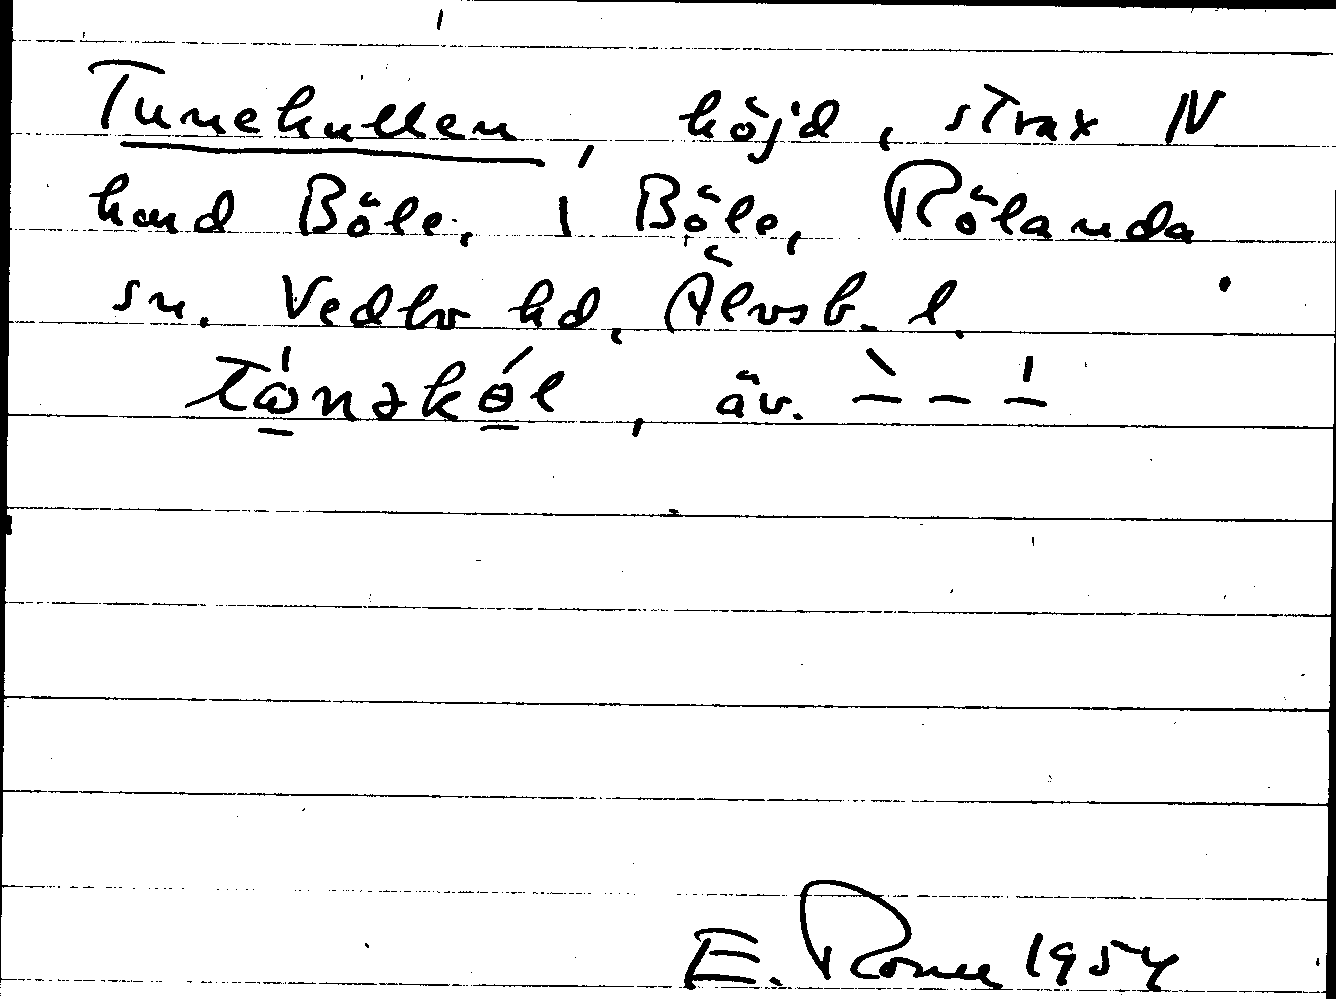 Tunekullen, höjd, strax N
hund Böle. I Böle, Rölanda
sn. Vedbo hd, Älvsb. l.
Tå̀nəkól, äv. – – –
E. Rome 1954